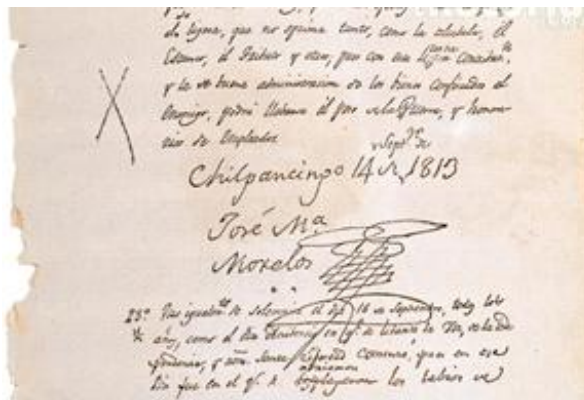 de ligera, que no oprima tanto, como la alcabala, el
Estanco, el tributo y otros, pues con esta ligera
y la buena administracion de los bienes confiscados al
Enemigo, podrá llebarse el peso de la Guerra, y honora-
rios de Empleados
Chilpancingo 14 de Septre. de 1813
José Mª
Morelos
23º Que igualmte. se solemnice el dia 16 de Septiembre, todos los
años, como el dia en qe. se la Voz de la Inde-
pendencia, y nuestra Santa Libertad Comenzó, pues en ese
Dia fue en el qe. se desplegaron los labios de